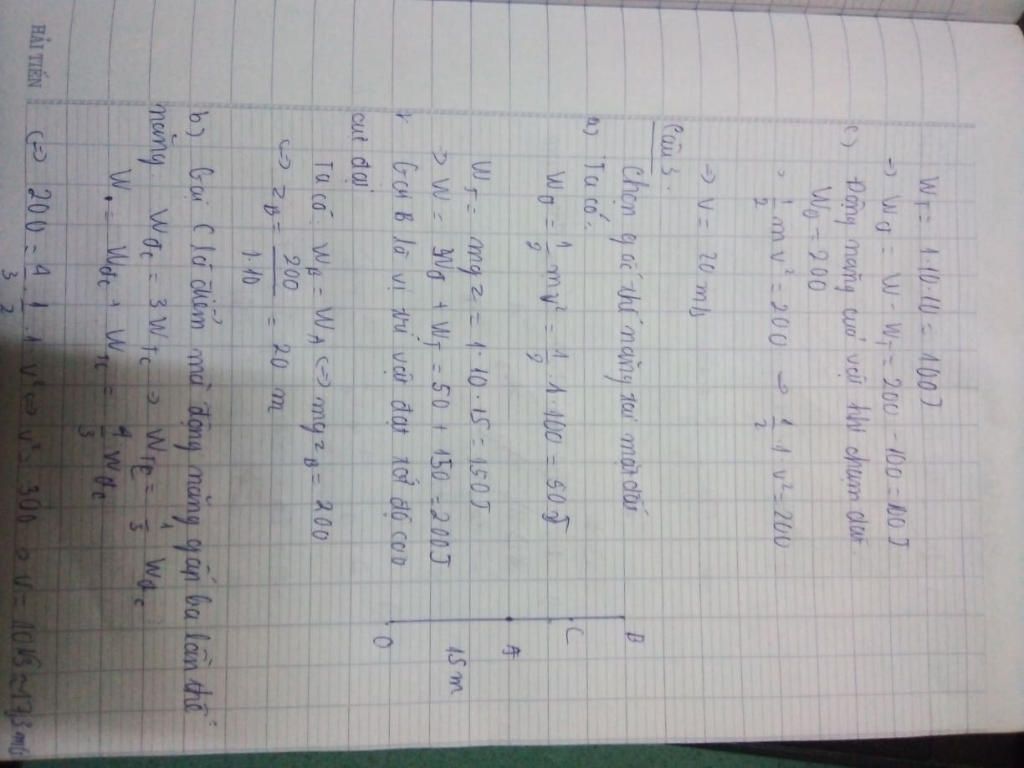 W_T = 1.10.10 = 100J
→ W_đ = W - W_T = 200 - 100 = 100J
c) Động năng cuả vật khi chạm đất
W_đ = 200
→ 1/2 mv² = 200 → 1/2 . 1 v² = 200
→ v = 20 m/s
Câu 3.
Chọn gốc thế năng tại mặt đất
a) Ta có:
W_đ = 1/2 mv² = 1/2 . 1.100 = 50J
W_T = mgz = 1.10.15 = 150J
→ W = W_đ + W_T = 50 + 150 = 200J
Gọi B là vị trí vật đạt tốc độ cao
cực đại
Ta có: W_B = W_A <=> mgz_B = 200
<=> z_B = 200/1.10 = 20 m
B
C
A
15 m
O
b) Gọi C là điểm mà động năng gấp ba lần thế
năng. W_đc = 3W_Tc → W_Tc = 1/3 W_đc
W = W_đc + W_Tc = 4/3 W_đc
<=> 200 = 4/3 . 1/2 . 1. v² <=> v² = 300
HẢI TIẾN